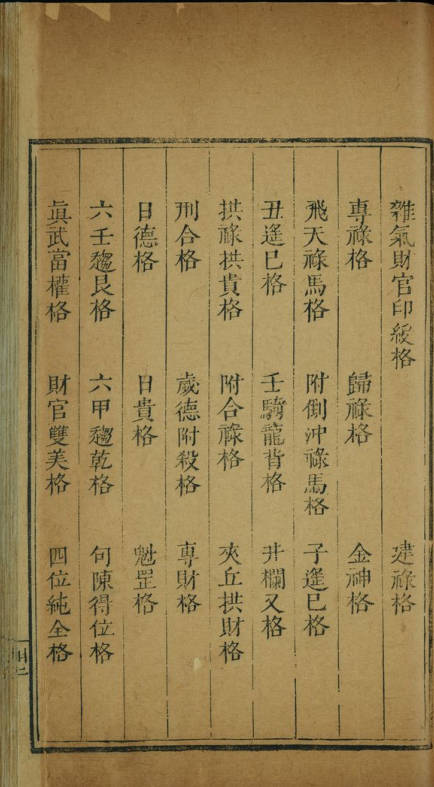 雜氣財官印綬格 建祿格
專祿格 歸祿格 金神格
飛天祿馬格 附倒沖祿馬格 子遙巳格
丑遙巳格 壬騎龍背格 井欄叉格
拱祿拱貴格 附合祿格 夾丘拱財格
刑合格 歲德附殺格 專財格
日德格 日貴格 魁罡格
六壬趨艮格 六甲趨乾格 勾陳得位格
眞武當權格 財官雙美格 四位純全格